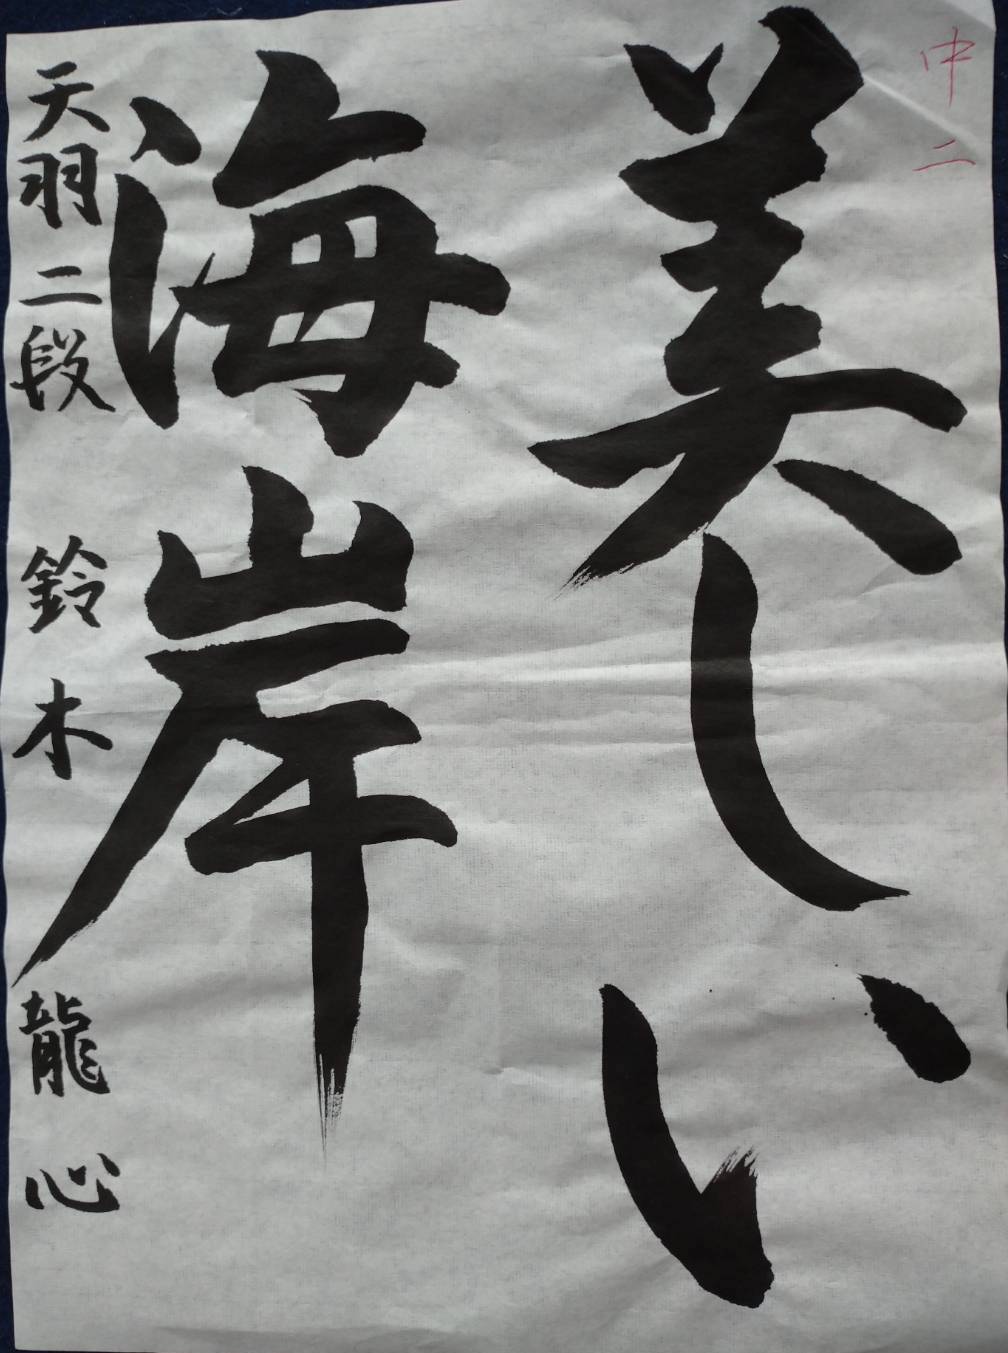 中二
美しい
海岸
天羽二段 鈴木龍心